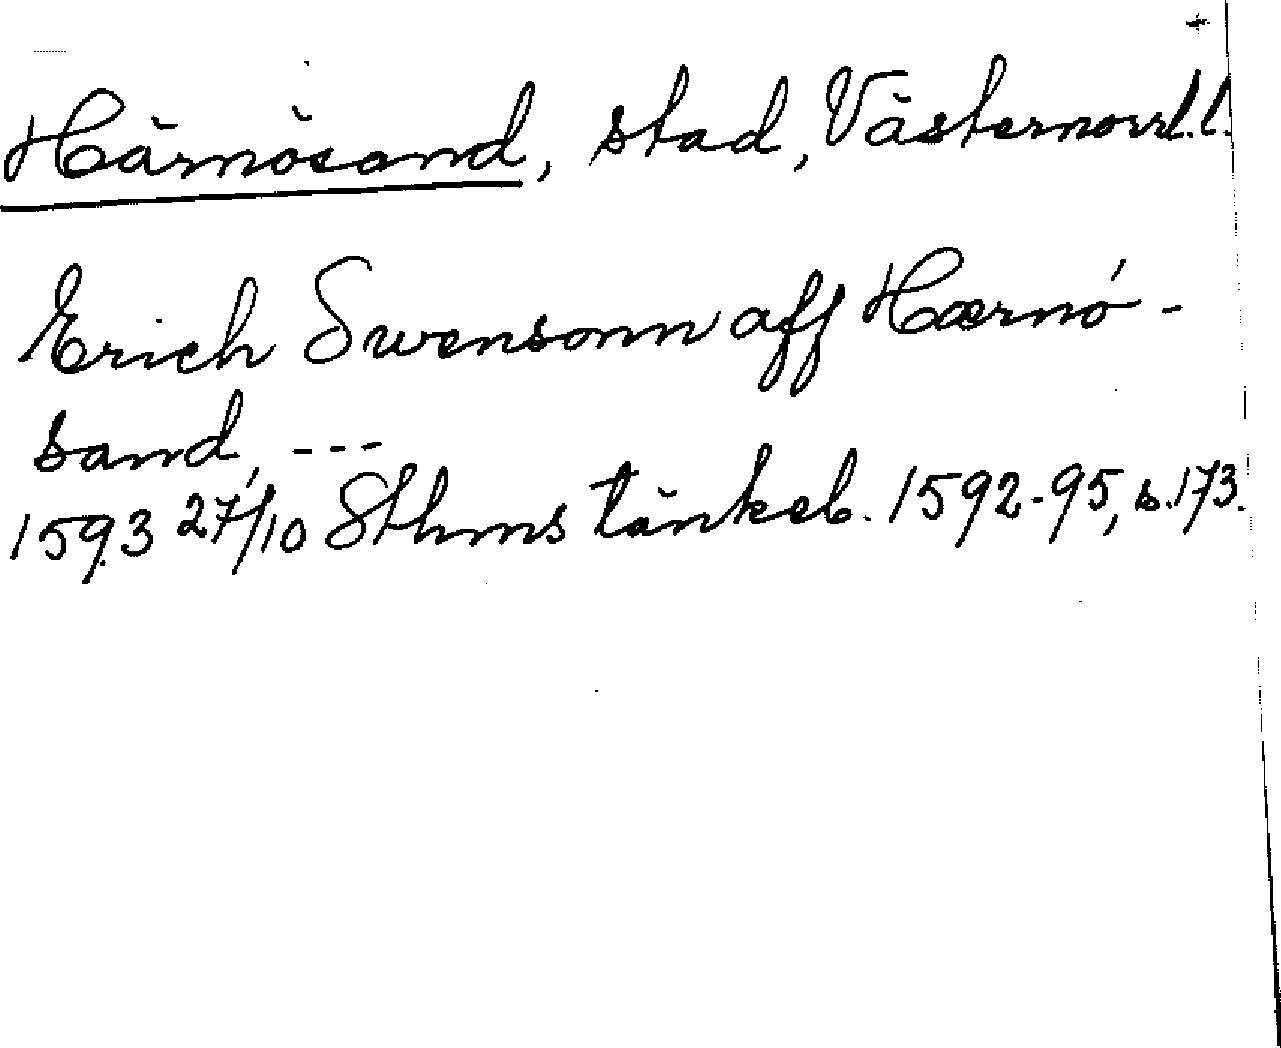 +
Härnösand, stad, Västernorrl.l.
Erich Swensonn aff Hærnó-
sand, ---
1593 27/10 Sthms tänkeb. 1592-95, s.173.